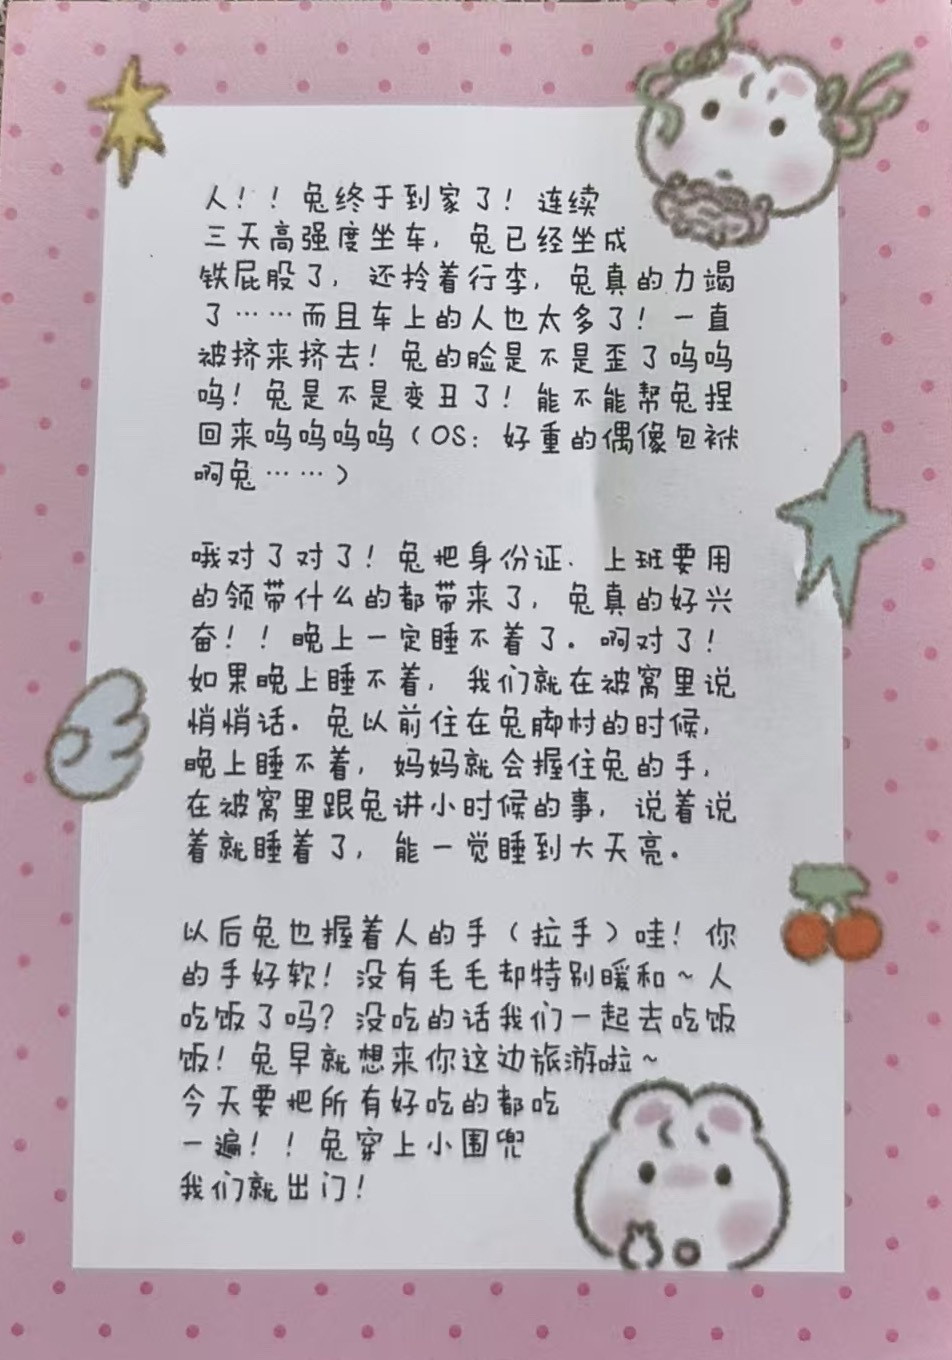 人！！兔终于到家了！连续
三天高强度坐车，兔已经坐成
铁屁股了，还拎着行李，兔真的力竭
了……而且车上的人也太多了！一直
被挤来挤去！兔的脸是不是歪了呜呜
呜！兔是不是变丑了！能不能帮兔捏
回来呜呜呜呜（OS：好重的偶像包袱
啊兔……）
哦对了对了！兔把身份证、上班要用
的领带什么的都带来了，兔真的好兴
奋！！晚上一定睡不着了。啊对了！
如果晚上睡不着，我们就在被窝里说
悄悄话。兔以前住在兔脚村的时候，
晚上睡不着，妈妈就会握住兔的手，
在被窝里跟兔讲小时候的事，说着说
着就睡着了，能一觉睡到大天亮。
以后兔也握着人的手（拉手）哇！你
的手好软！没有毛毛却特别暖和~人
吃饭了吗？没吃的话我们一起去吃饭
饭！兔早就想来你这边旅游啦~
今天要把所有好吃的都吃
一遍！！兔穿上小围兜
我们就出门！